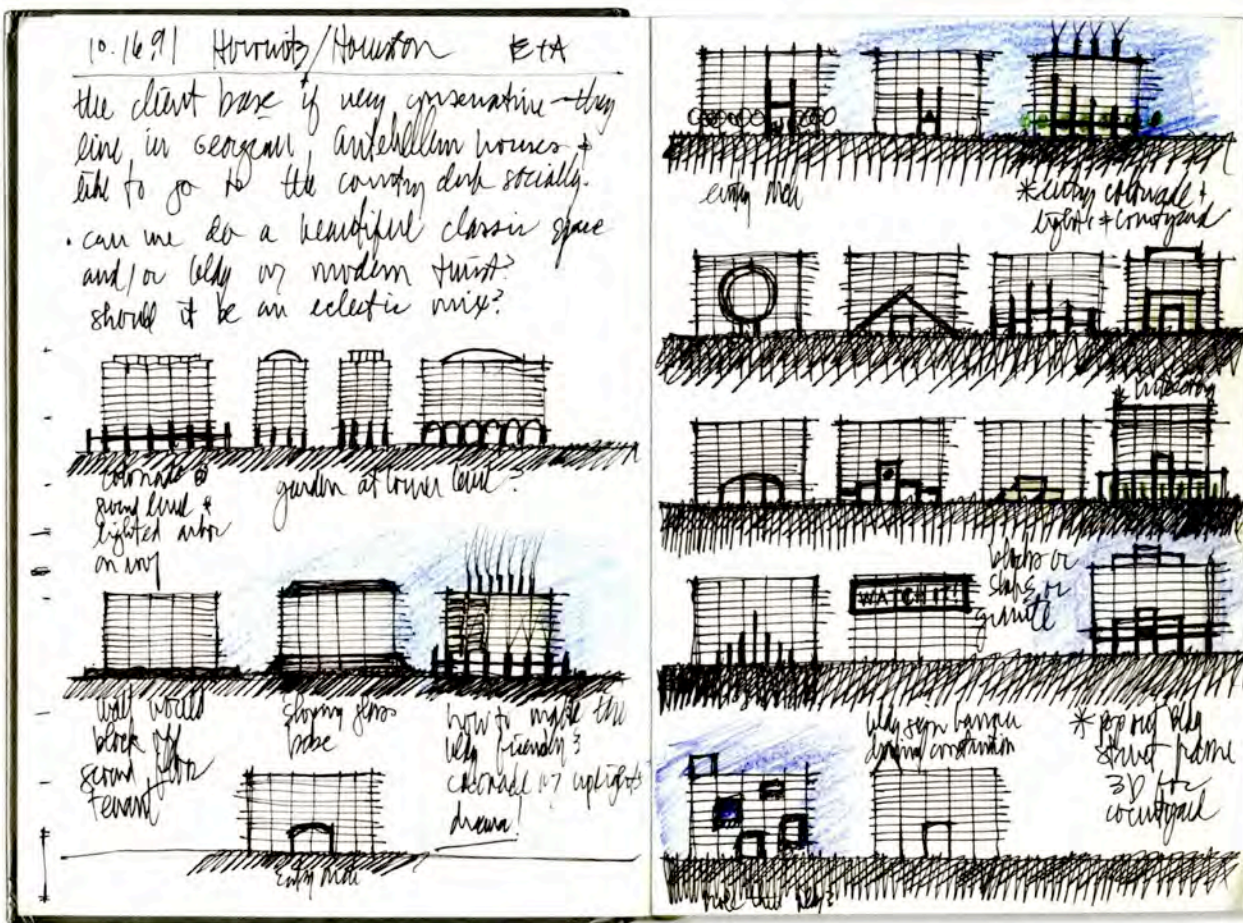 10.16.91 Horwitz/Houston E+A
the client base if very conservative - they
live in Georgean, antebellum houses +
like to go to the country club socially.
• can we do a beautiful classic space
and/or bldg w/ modern twist?
should it be an eclectic mix?
colonade @
ground level +
lighted arbor
on roof
garden at lower level?
wall would
block off
second floor
tenant
sloping glass
base
how to make the
bldg friendly?
colonade w/ uplights
drama!
entry arch
entry arch
*entry colonade +
lights + courtyard
blocks or
slabs or
granite
WATCH IT!
bldg sign banner
during construction
* pop out bldg
struct frame
3D for
courtyard